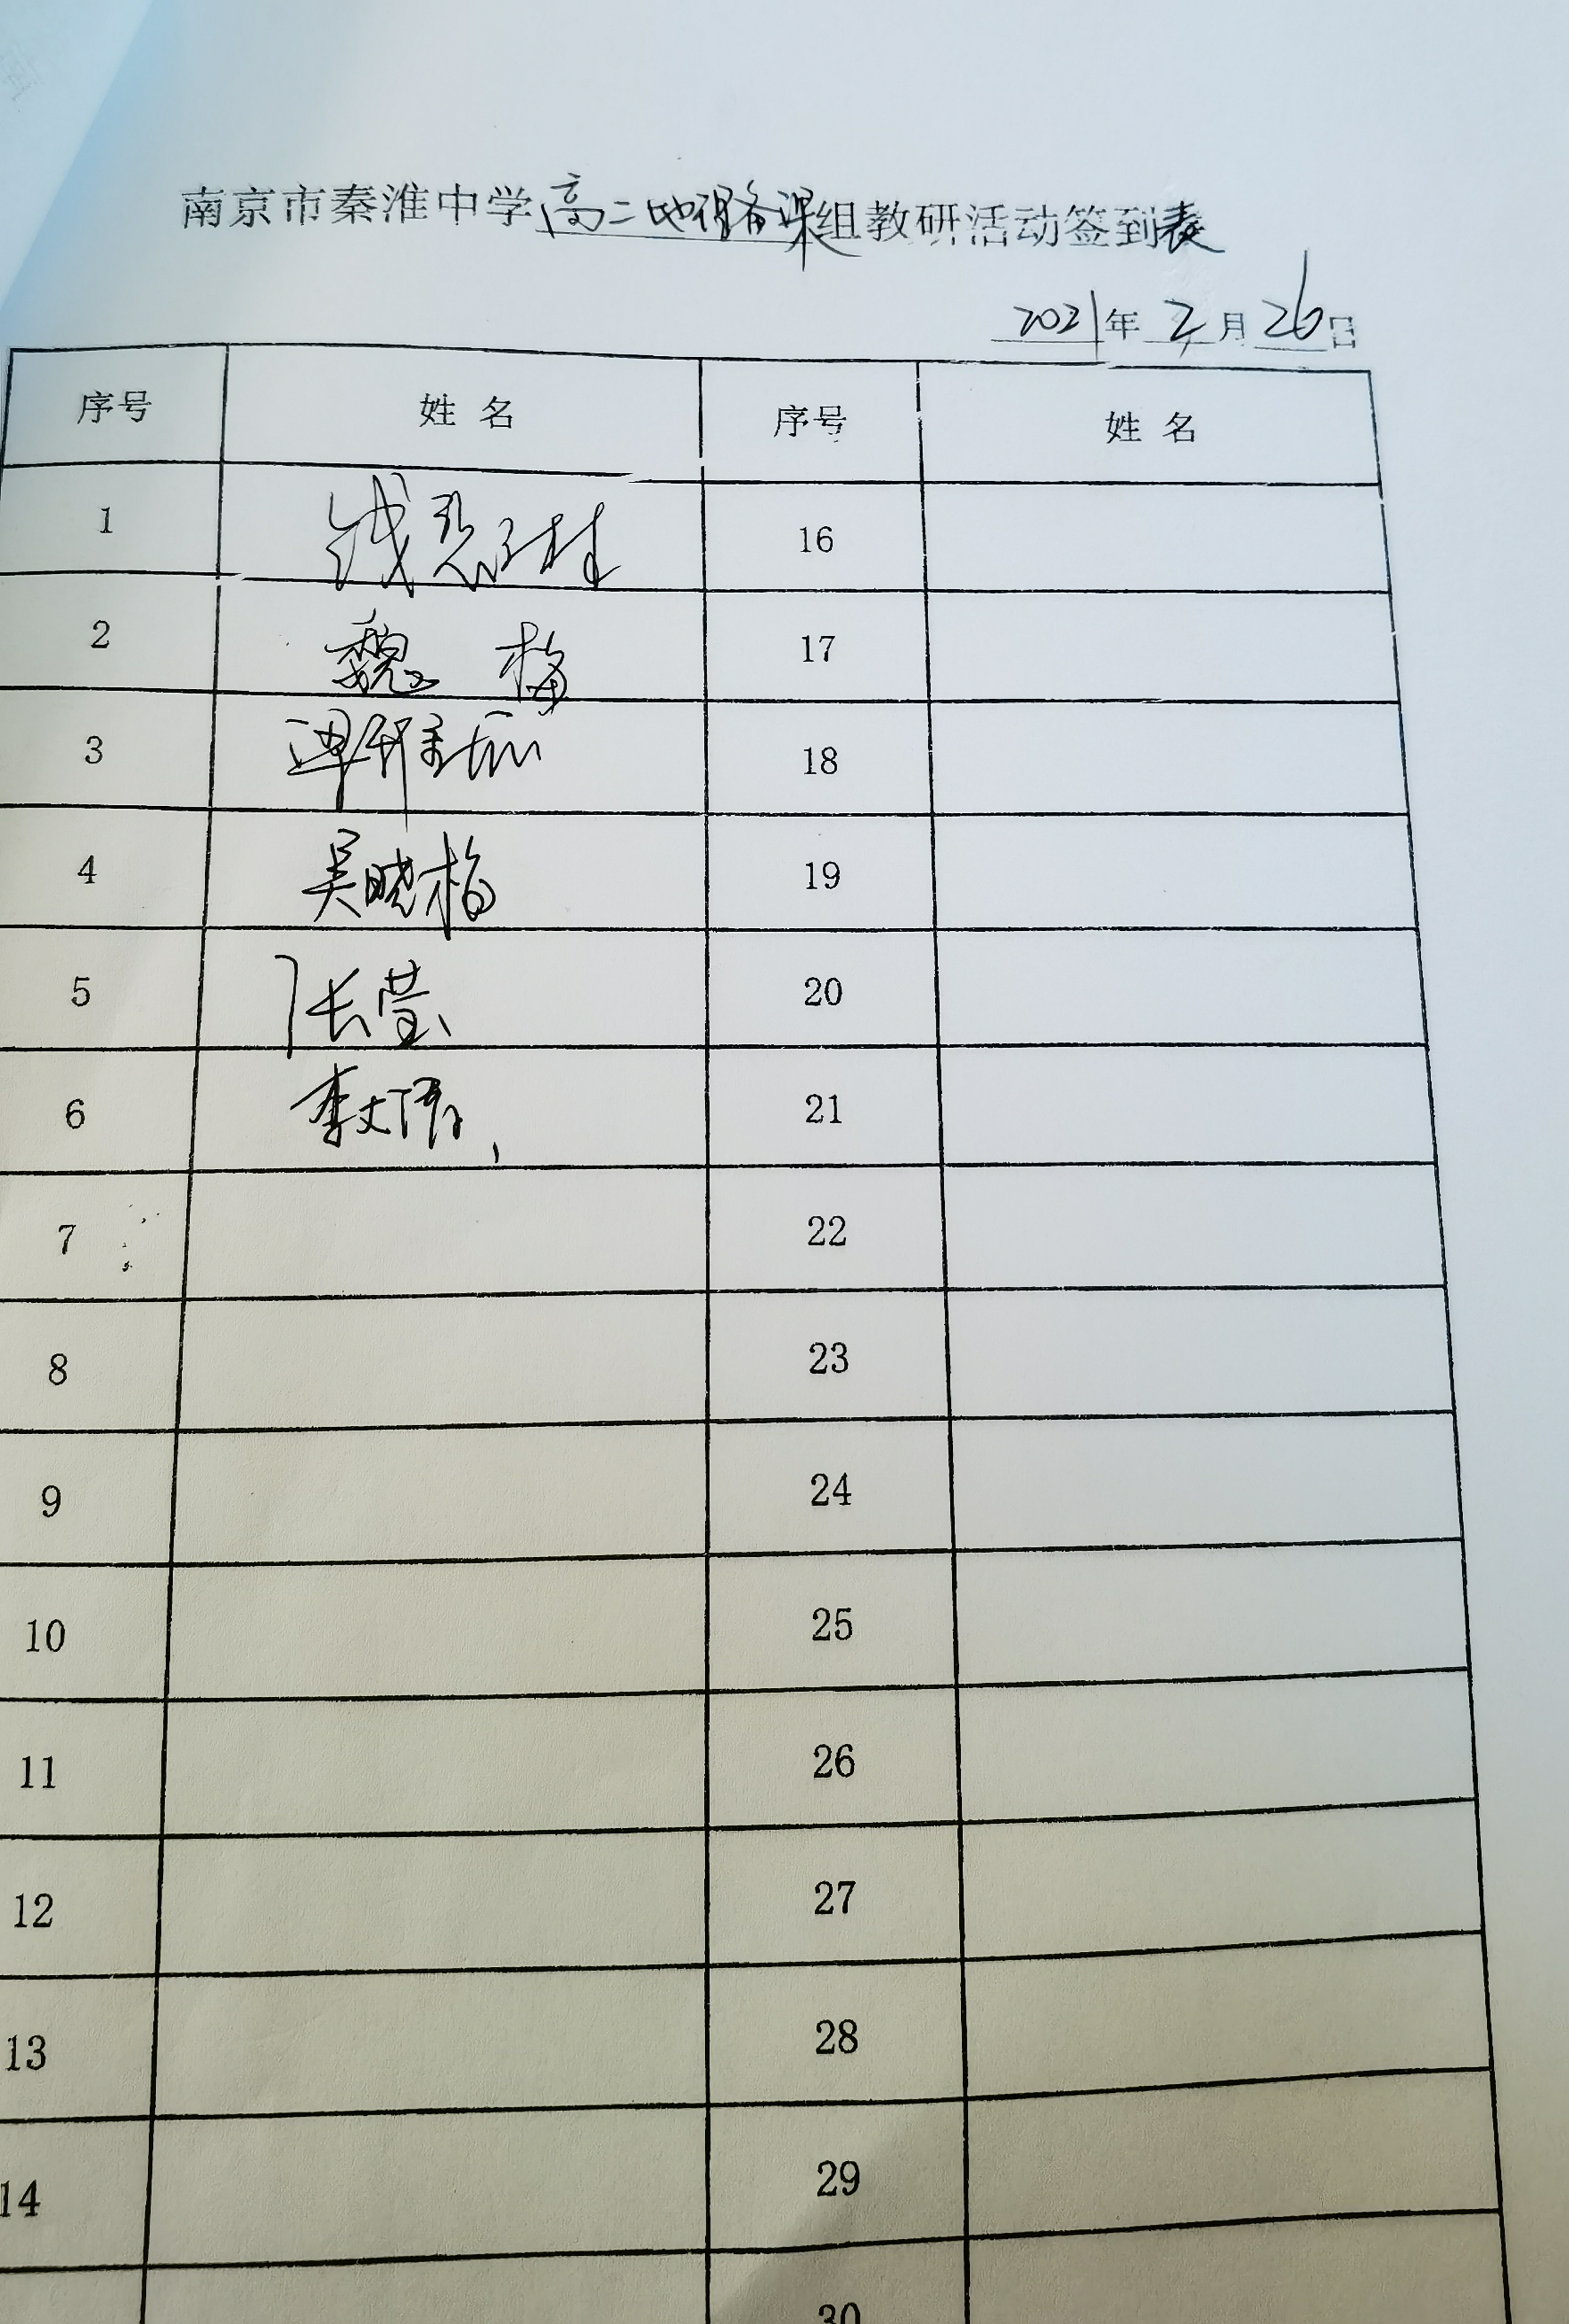 南京市秦淮中学高二地理备课组教研活动签到表
2021年2月26日
序号 姓名 序号 姓名
1 钱 16
2 魏梅 17
3 18
4 吴晓梅 19
5 张莹 20
6 李文 21
7 22
8 23
9 24
10 25
11 26
12 27
13 28
14 29
30